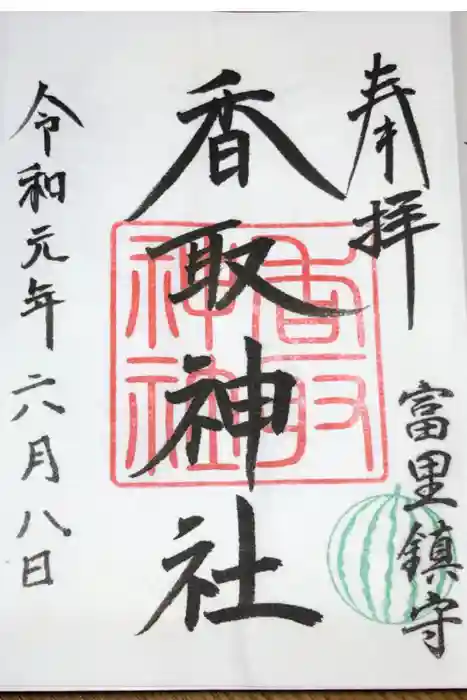 奉拝
富里鎮守
香取神社
香取神社
令和元年六月八日